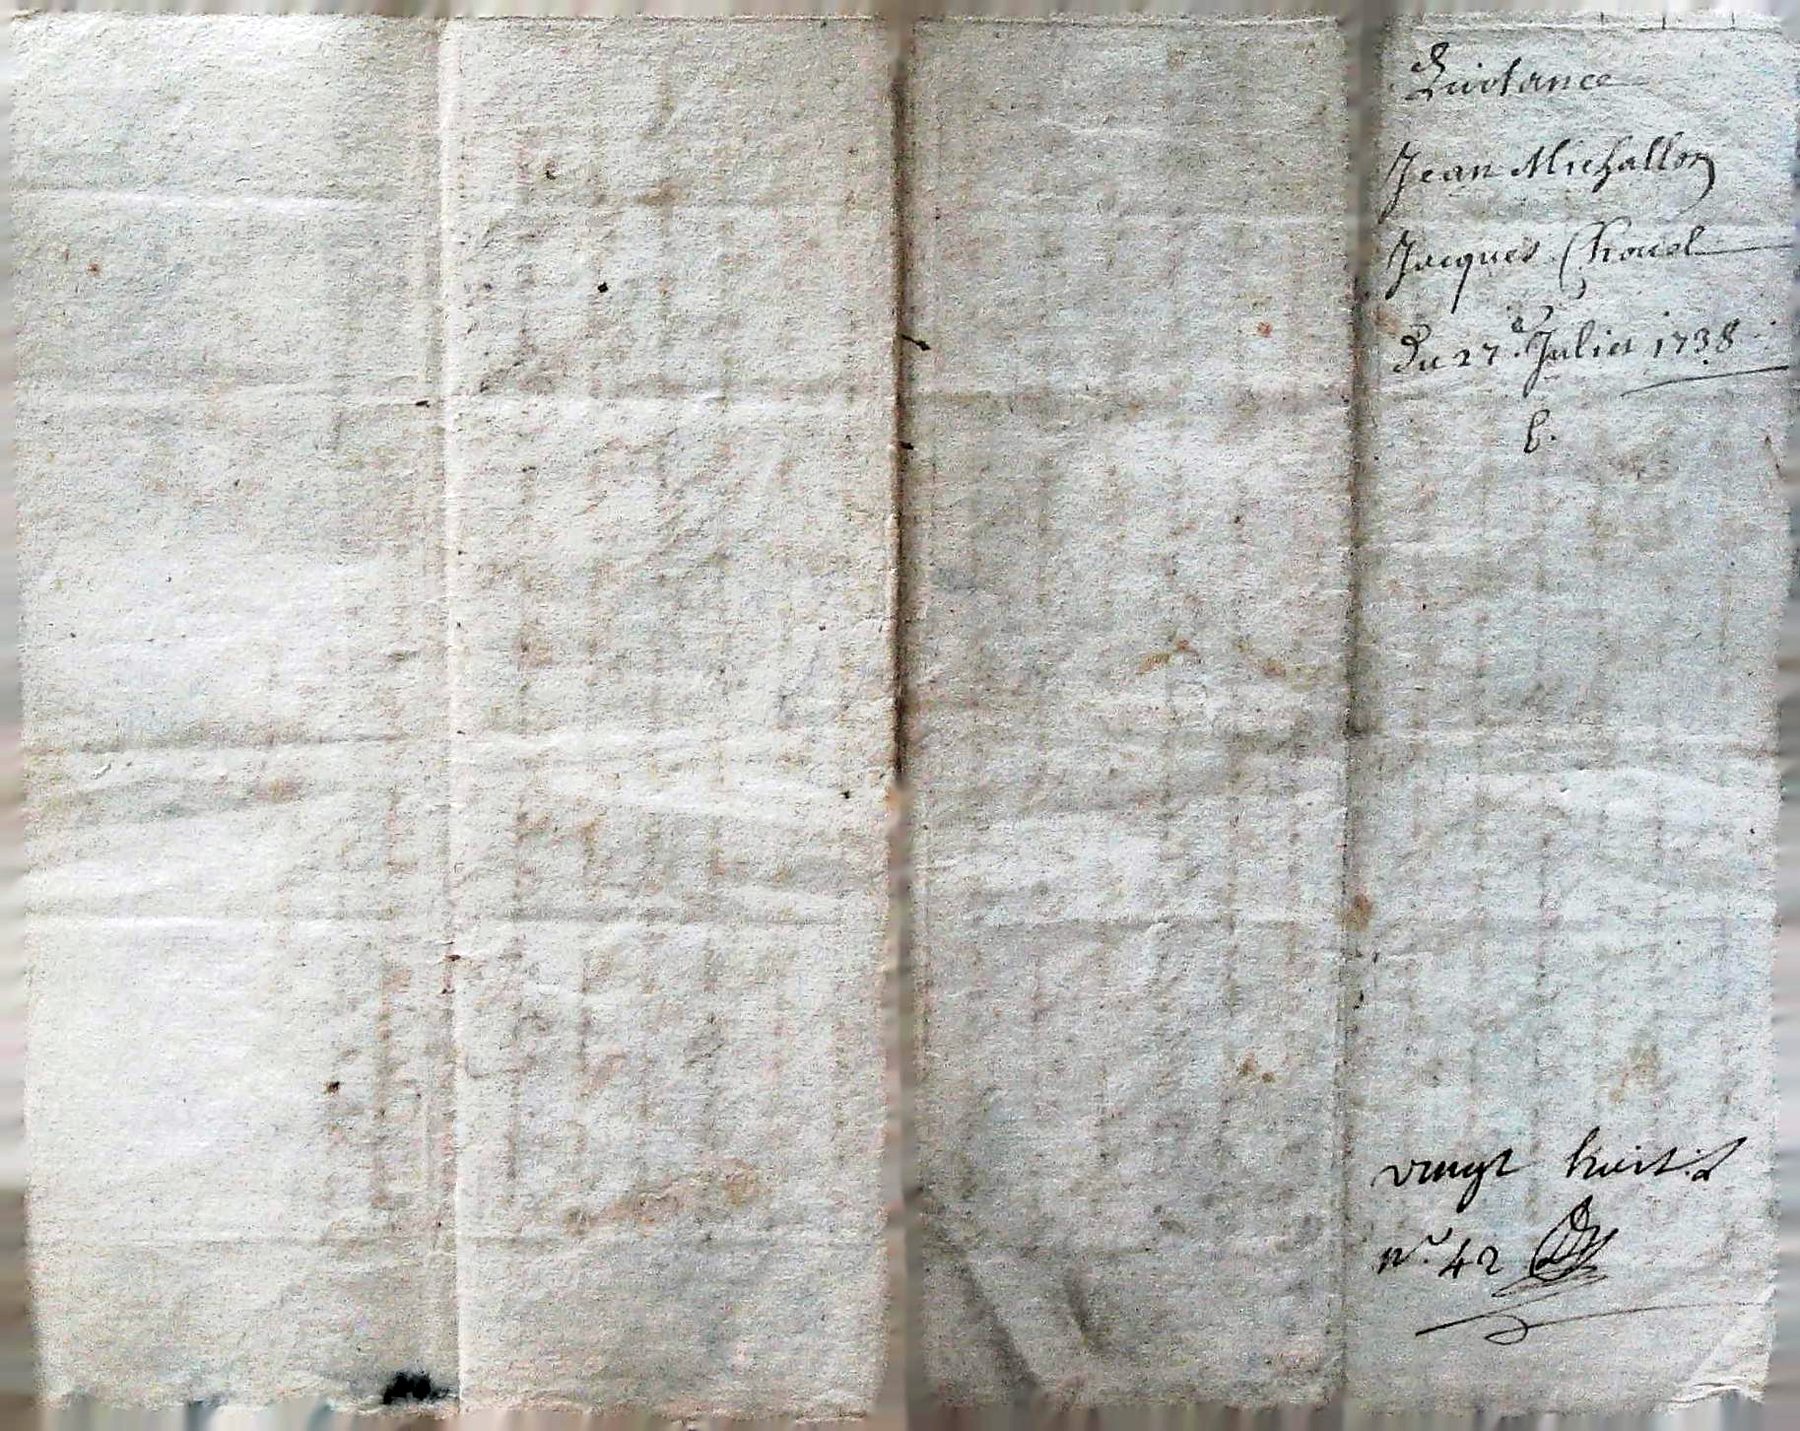 Quictance
Jean Michallon
Jacques Chouel
du 27e Julier 1738
C.
vingt huit.
n.o 42